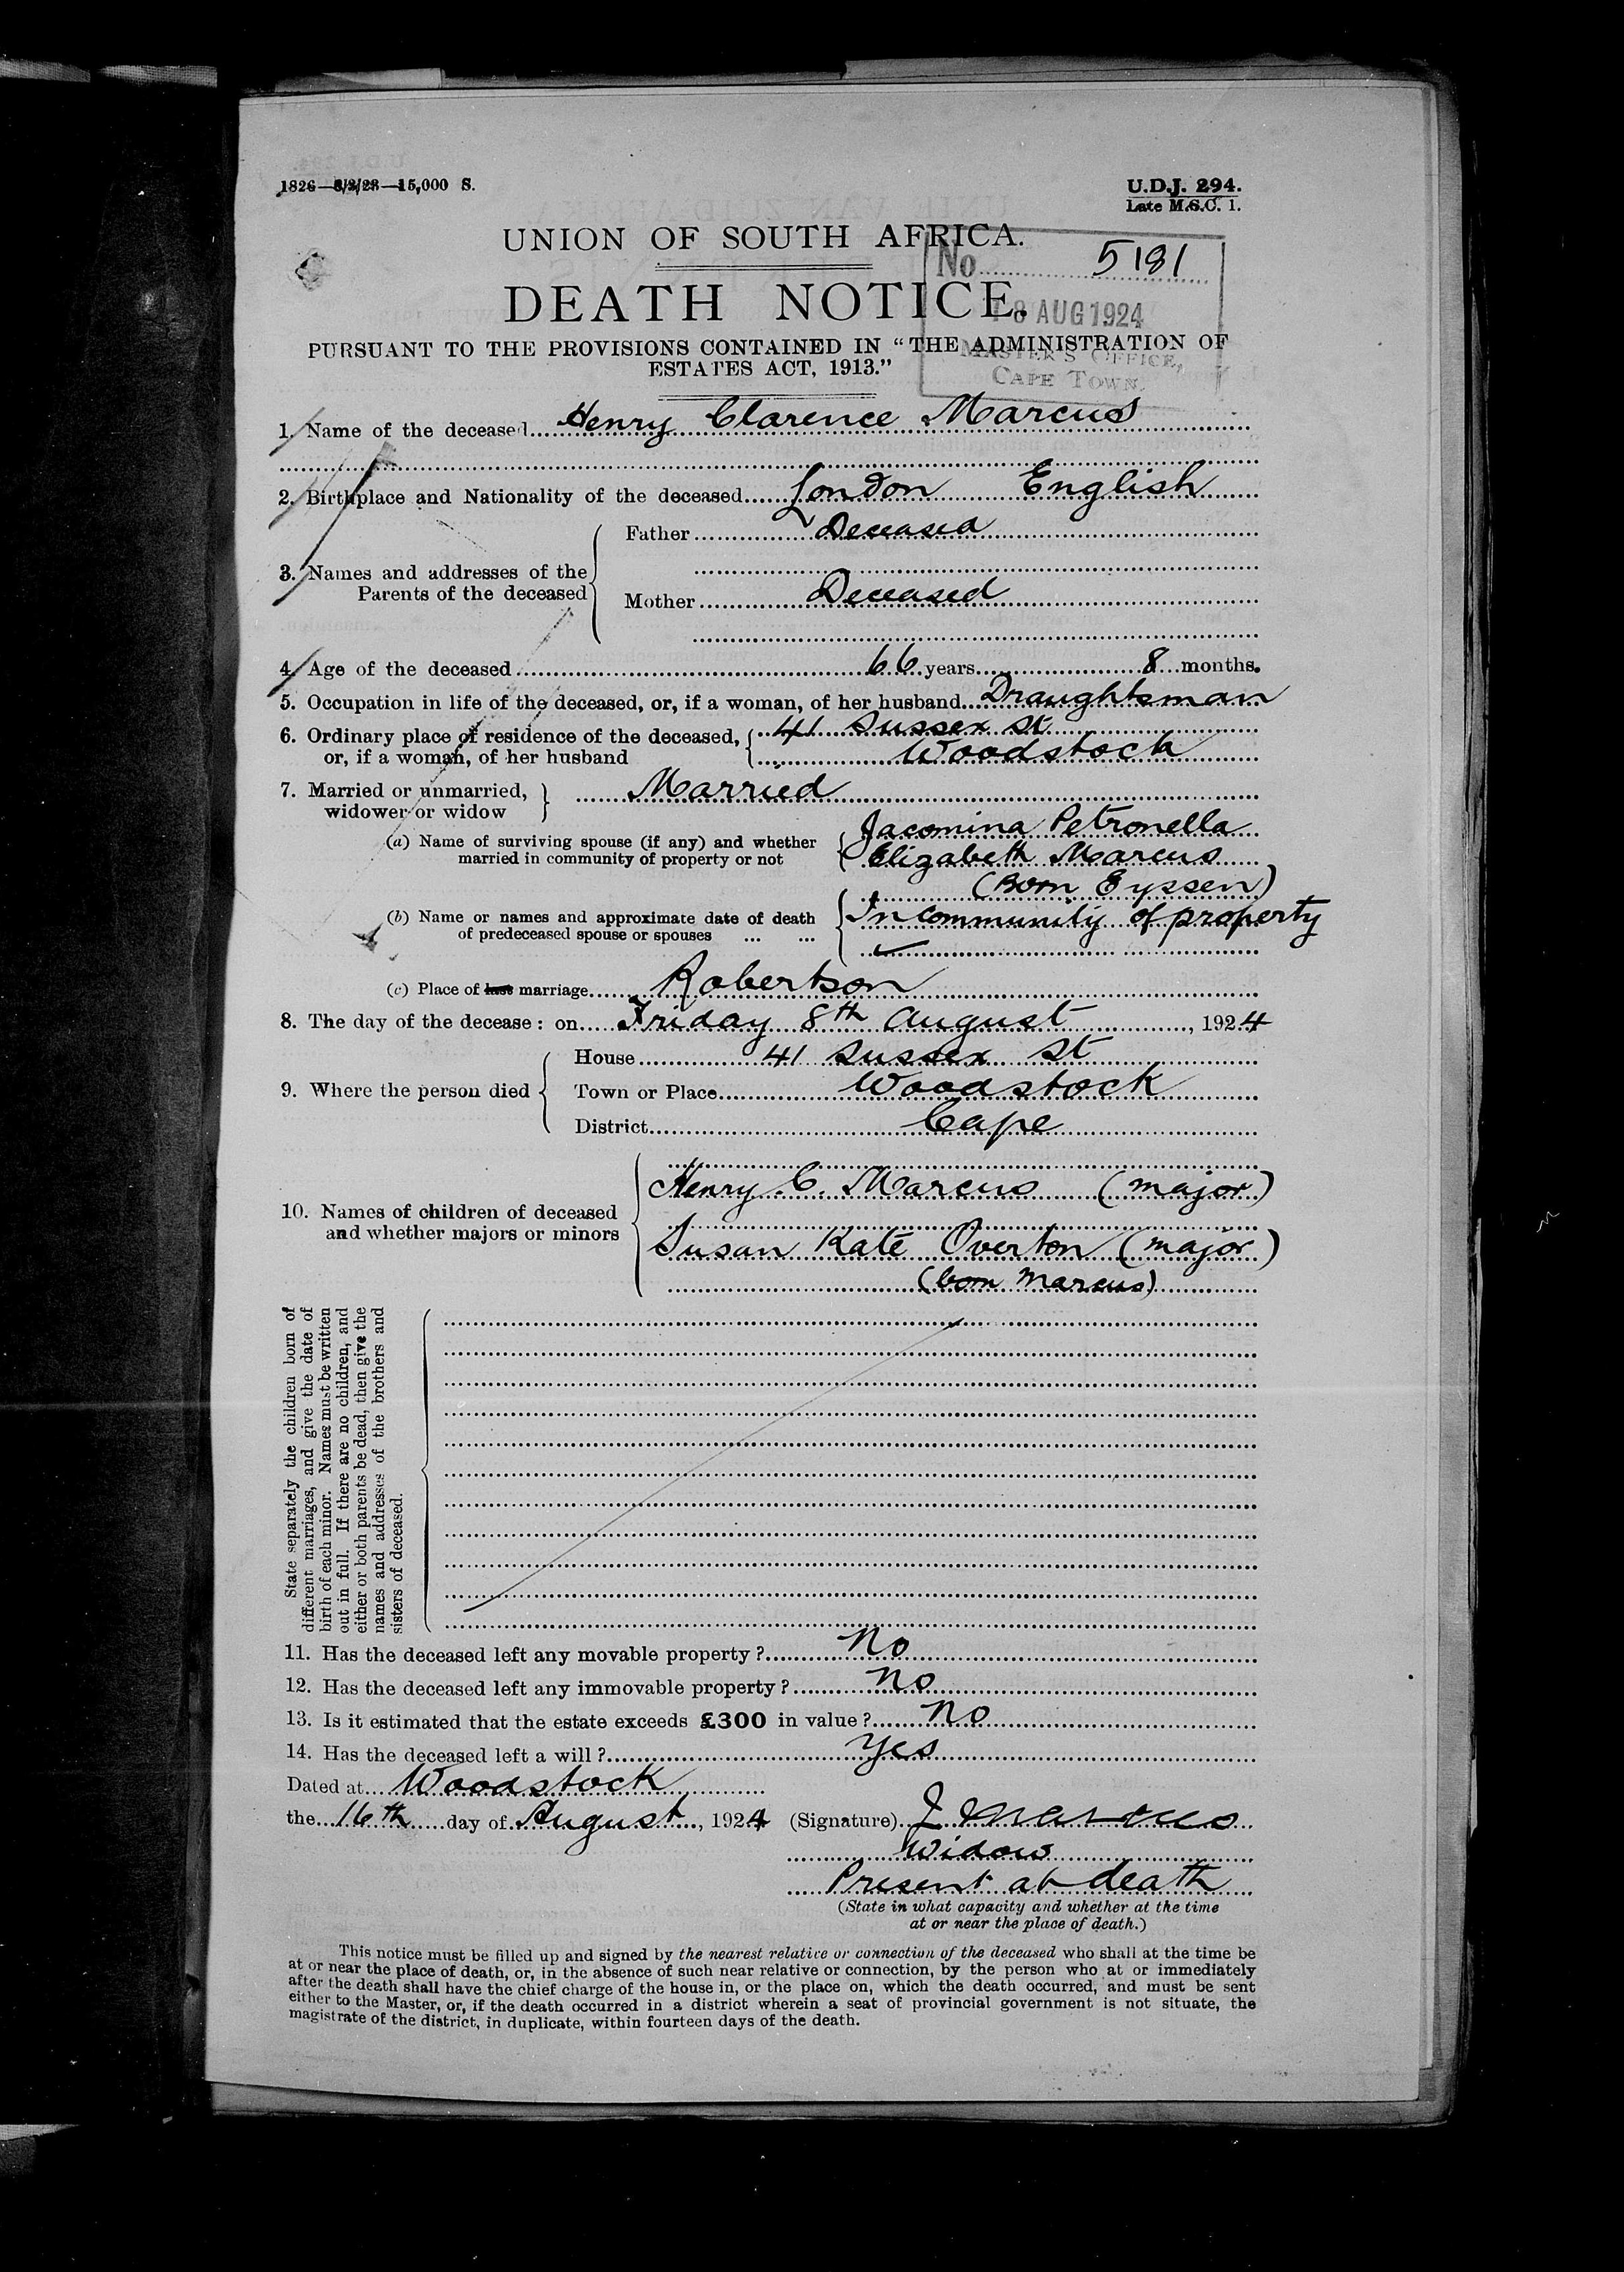 1826—8/2/23—15,000 S.
U.D.J. 294.
Late M.S.C. 1.
UNION OF SOUTH AFRICA.
No 5181
DEATH NOTICE.
18 AUG 1924
MASTER'S OFFICE,
CAPE TOWN.
PURSUANT TO THE PROVISIONS CONTAINED IN "THE ADMINISTRATION OF
ESTATES ACT, 1913."
1. Name of the deceased Henry Clarence Marcus
2. Birthplace and Nationality of the deceased London English
3. Names and addresses of the Parents of the deceased
Father Deceased
Mother Deceased
4. Age of the deceased 66 years 8 months.
5. Occupation in life of the deceased, or, if a woman, of her husband Draughtsman
6. Ordinary place of residence of the deceased, 41 Sussex St
or, if a woman, of her husband Woodstock
7. Married or unmarried, widower or widow Married
(a) Name of surviving spouse (if any) and whether Jacomina Petronella
married in community of property or not Elizabeth Marcus
(Born Eyssen)
(b) Name or names and approximate date of death In community of property
of predeceased spouse or spouses ... ...
(c) Place of last marriage Robertson
8. The day of the decease: on Friday 8th August, 1924
9. Where the person died
House 41 Sussex St
Town or Place Woodstock
District Cape
10. Names of children of deceased
and whether majors or minors
Henry C. Marcus (major)
Susan Kate Overton (major)
(born Marcus)
State separately the children born of
different marriages, and give the date of
birth of each minor. Names must be written
out in full. If there are no children, and
either or both parents be dead, then give the
names and addresses of the brothers and
sisters of deceased.
11. Has the deceased left any movable property? No
12. Has the deceased left any immovable property? No
13. Is it estimated that the estate exceeds £300 in value? No
14. Has the deceased left a will? Yes
Dated at Woodstock
the 16th day of August, 1924 (Signature) J Marcus
Widow
Present at death
(State in what capacity and whether at the time
at or near the place of death.)
This notice must be filled up and signed by the nearest relative or connection of the deceased who shall at the time be
at or near the place of death, or, in the absence of such near relative or connection, by the person who at or immediately
after the death shall have the chief charge of the house in, or the place on, which the death occurred, and must be sent
either to the Master, or, if the death occurred in a district wherein a seat of provincial government is not situate, the
magistrate of the district, in duplicate, within fourteen days of the death.